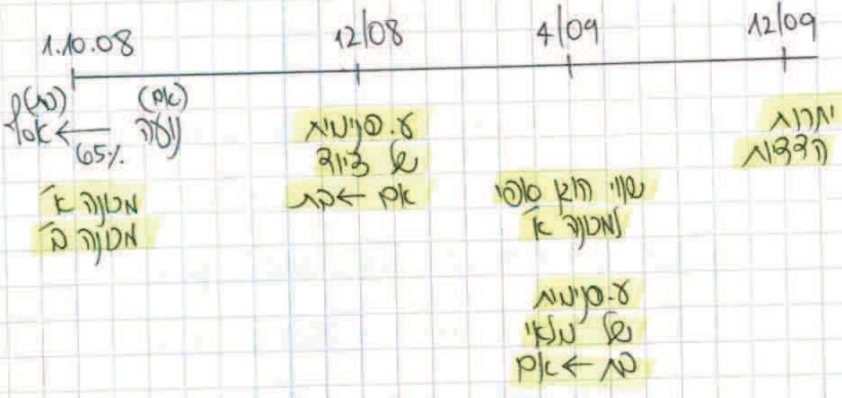 1.10.08 12/08 4/09 12/09
(בת) (אם)
אסף ← נועה
65%
מכונה א'
מכונה ב'
ע. פנימית
של ציוד
אם ← בת
שווי הוגן סופי
למכונה א'
ע. פנימית
של מלאי
בת ← אם
יתרות
הדדיות